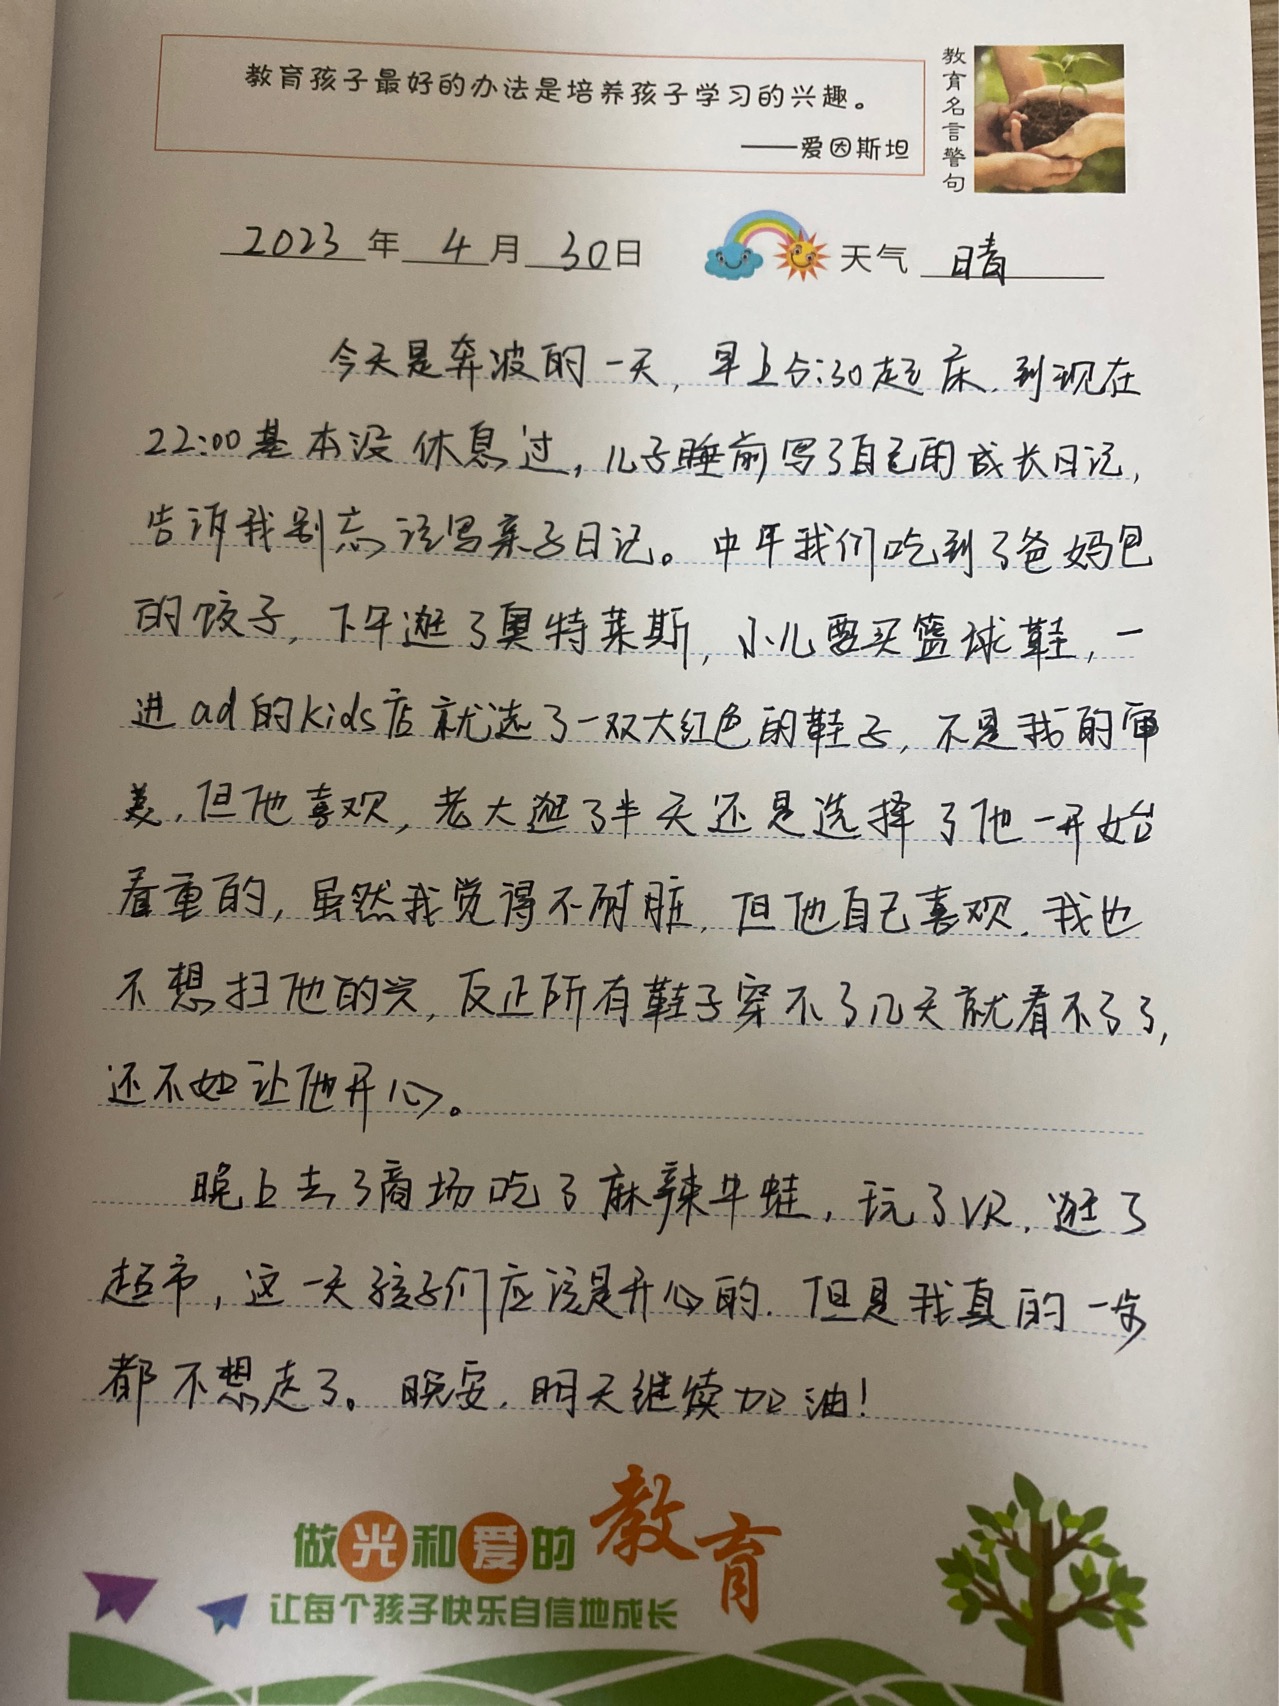 教育孩子最好的办法是培养孩子学习的兴趣。
——爱因斯坦
教育名言警句
2023年4月30日 天气 晴
今天是奔波的一天，早上5:30起床，到现在
22:00基本没休息过，儿子睡前写了自己的成长日记，
告诉我别忘该写亲子日记。中午我们吃到了爸妈包
的饺子，下午逛了奥特莱斯，小儿要买篮球鞋，一
进ad的kids店就选了一双大红色的鞋子，不是我的审
美，但他喜欢，老大逛了半天还是选择了他一开始
看重的，虽然我觉得不耐脏，但他自己喜欢，我也
不想扫他的兴，反正所有鞋子穿不了几天就看不了了，
还不如让他开心。
晚上去了商场吃了麻辣牛蛙，玩了VR，逛了
超市，这一天孩子们应该是开心的，但是我真的一步
都不想走了。晚安，明天继续加油！
做光和爱的教育
让每个孩子快乐自信地成长